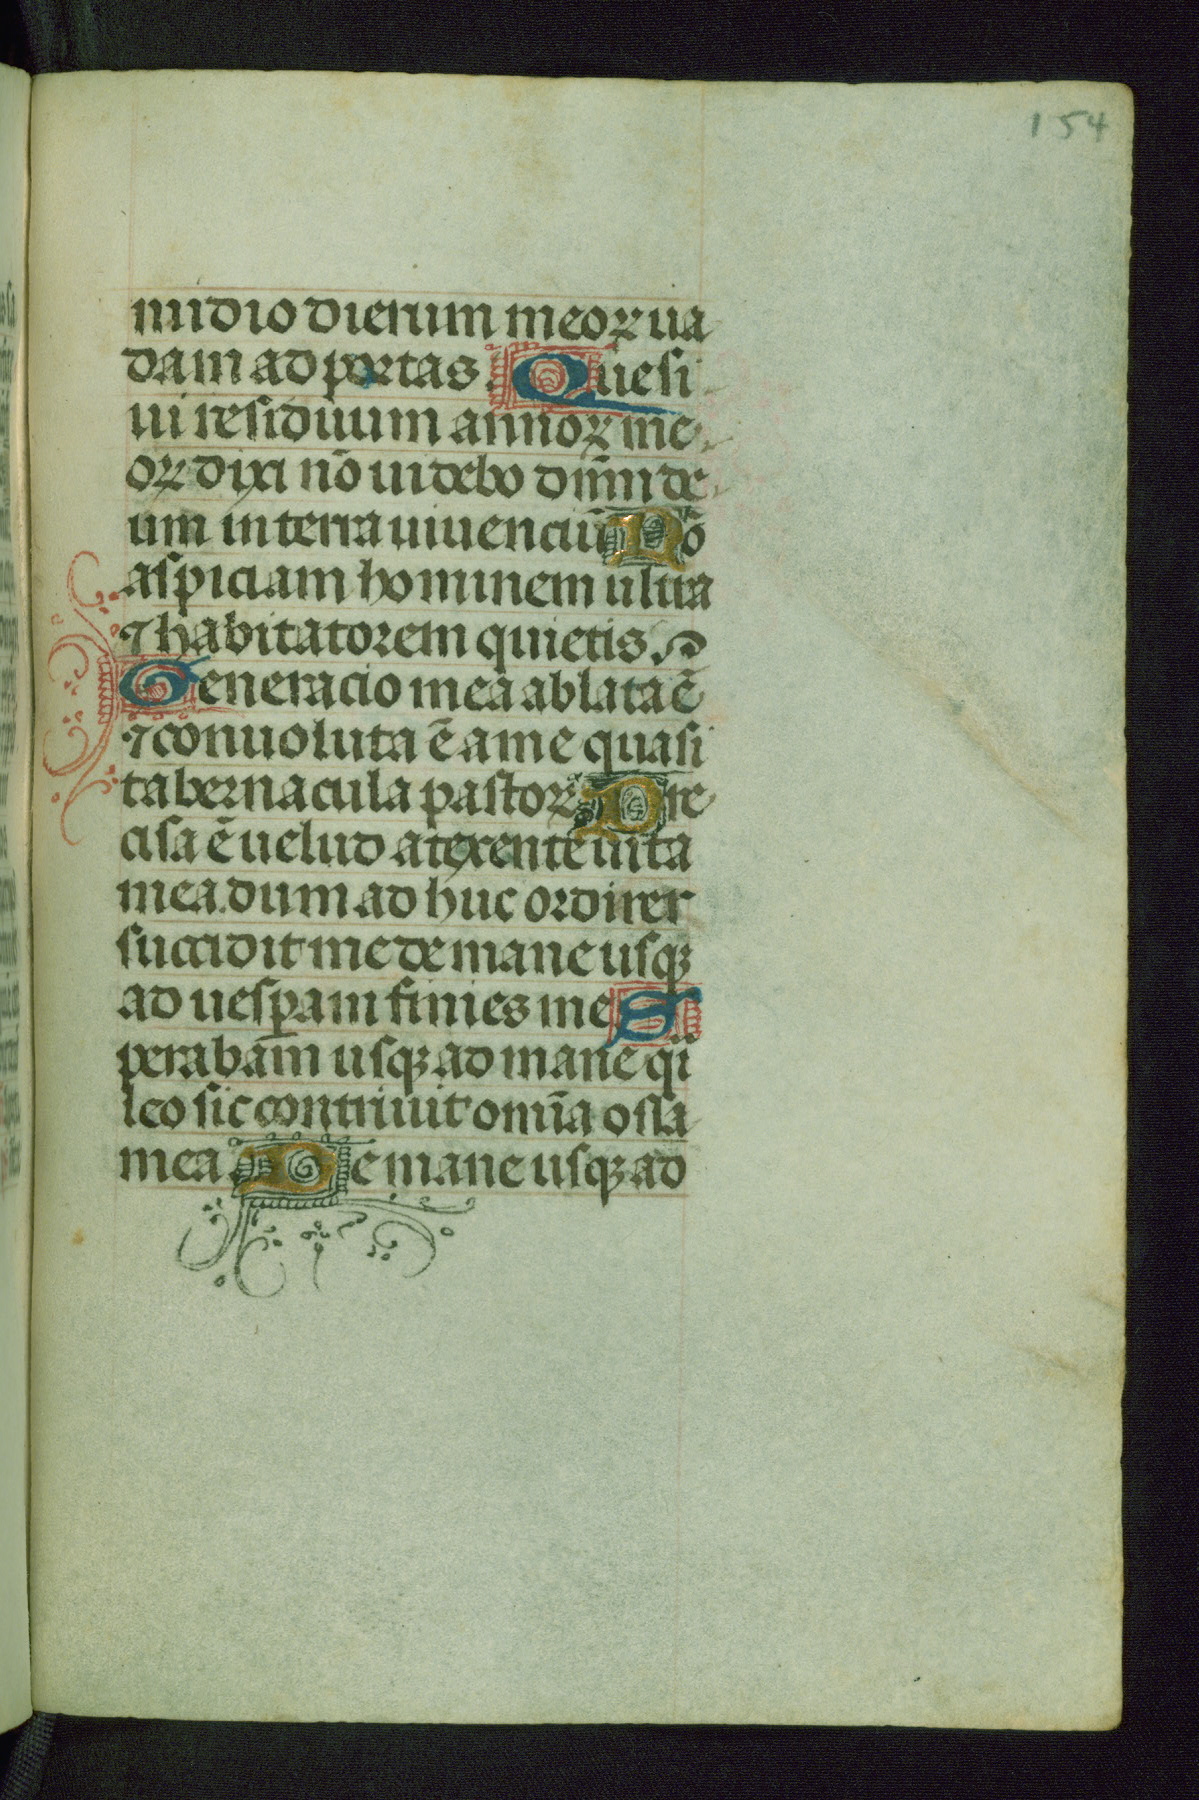 154
midio dierum meoꝝ ua
dam ad portas Quesi
ui residuum annoꝝ me
oꝝ dixi nō uidebo dn̄m de
um in terra uiuenciū Nō
aspiciam hominem ultra
⁊ habitatorem quietis
Generacio mea ablata ē
⁊ conuoluta ē a me quasi
tabernacula pastoꝝ Pre
cisa ē uelud a texente uita
mea dum ad huc ordirer
succidit me de mane usqꝫ
ad uesꝑam finies me S
perabam usqꝫ ad mane qi
leo sic contriuit om̄ia ossa
mea De mane usqꝫ ad